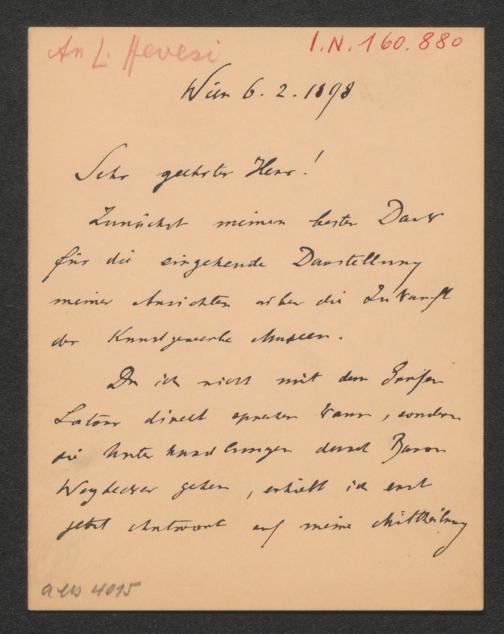 An L. Hevesi
I.N. 160.880
Wien 6. 2. 1898
Sehr geehrter Herr!
Zunächst meinen besten Dank
für die eingehende Darstellung
meiner Ansichten über die Zukunft
der Kunstgewerbe Museen.
Da ich nicht mit dem Grafen
Latour direct sprechen kann, sondern
die Unterhandlungen durch Baron
Weckbecker gehen, erhielt ich erst
jetzt Antwort auf meine Mittheilung